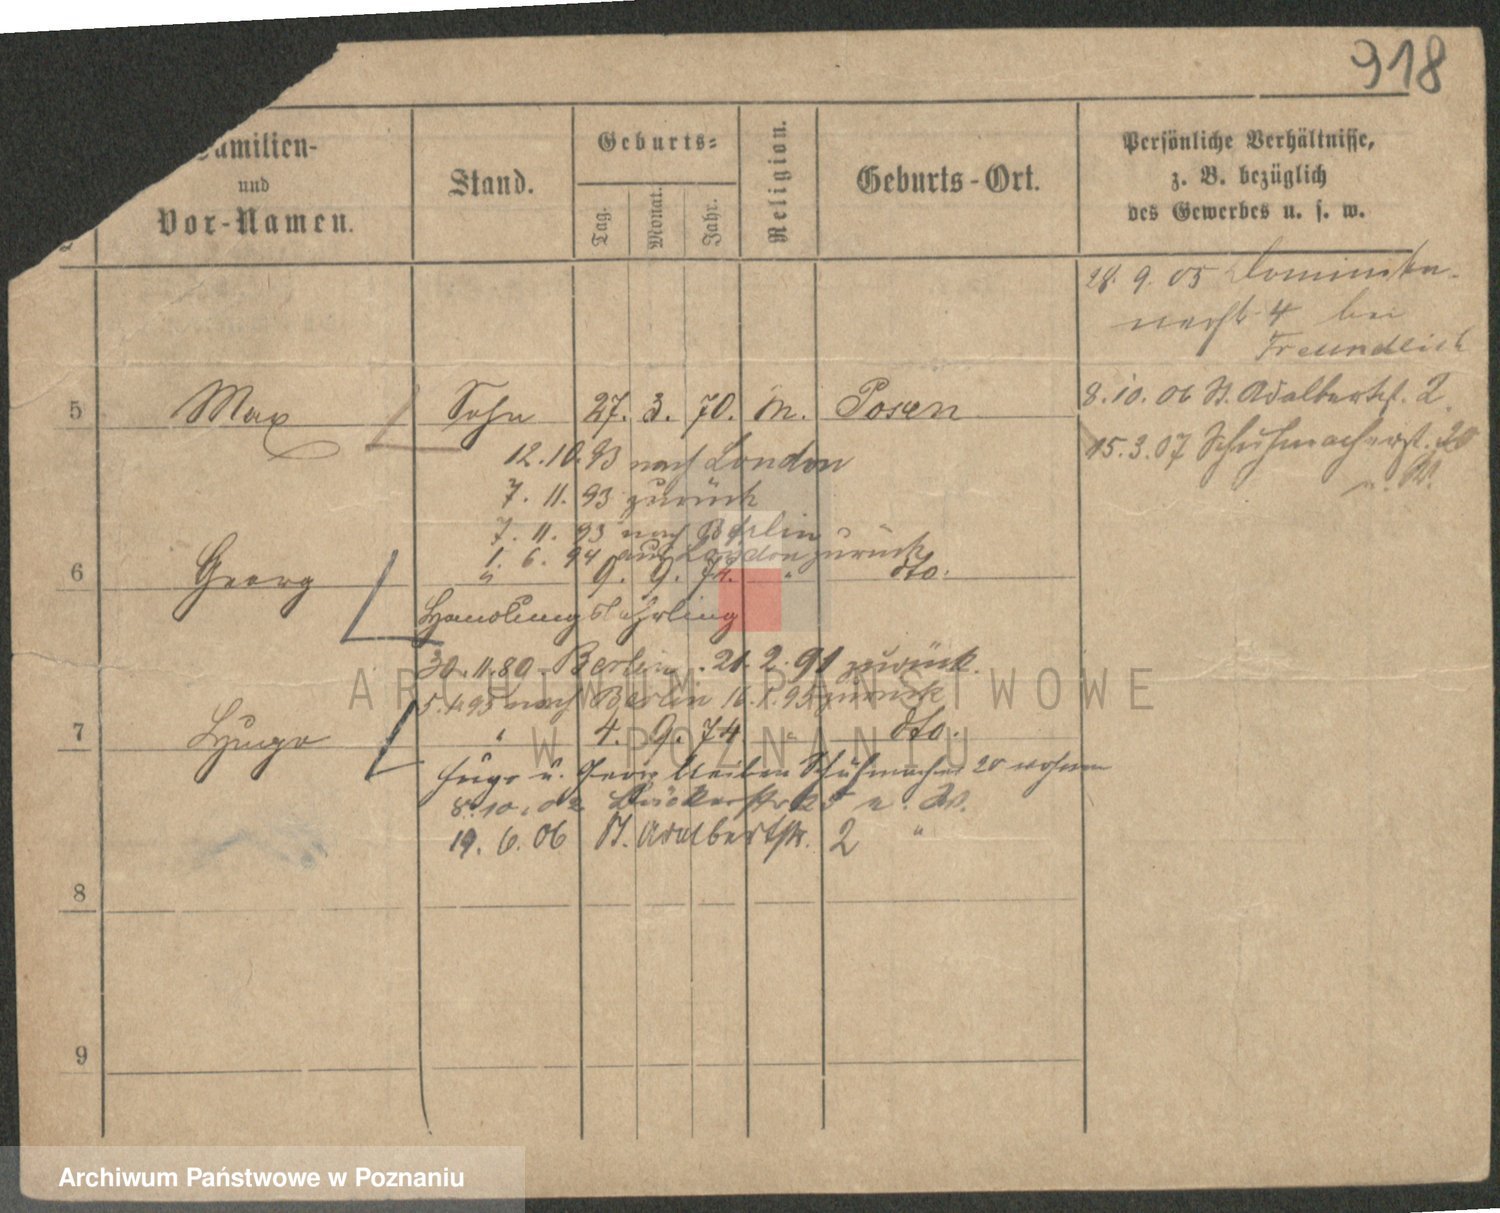 918
Familien-
und
Vor-Namen.
Stand.
Geburts-
Tag.
Monat.
Jahr.
Religion.
Geburts-Ort.
Persönliche Verhältnisse,
z. B. bezüglich
des Gewerbes u. s. w.
28. 9. 05
4 bei
Freundlich
8. 10. 06 St. Adalbertst. 2
15. 3. 07 Schuhmacherst. 20
u. W.
5 Max Sohn 27. 3. 70. m. Posen
12. 10. 93 nach London
7. 11. 93 zurück
7. 11. 93 nach Berlin
1. 6. 94 aus London zurück
6 Georg " 9. 9. 74. " dto.
Handlungslehrling
30. 11. 89. Berlin. 21. 2. 91 zurück.
nach Berlin 16. 1. 95 zurück
7 Hugo " 4. 9. 74. " dto.
Hugo u. Georg bleiben Schuhmacher 20 wohnen
8. 10. 02 u. W.
19. 6. 06 St. Adalbertstr. 2 "
8
9
ARCHIWUM PAŃSTWOWE
W POZNANIU
Archiwum Państwowe w Poznaniu